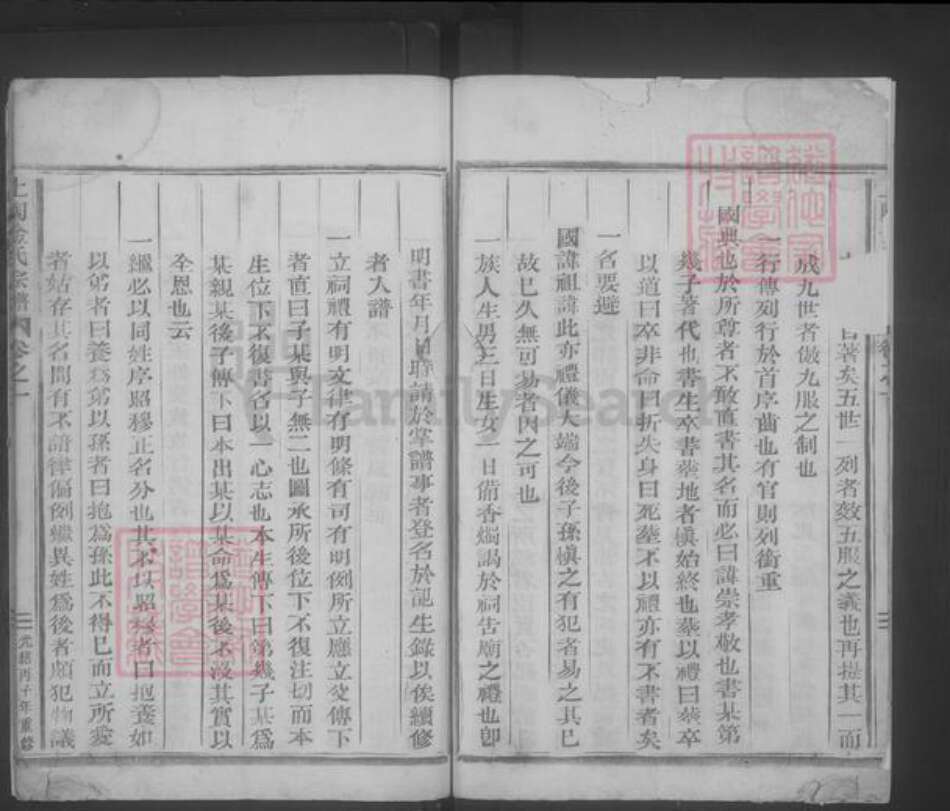 昌著矣五世一列者效五服之義也再提其一而
成九世者倣九服之制也
一行傳列行於首序齒也有官則列銜重
國典也於所尊者不敢直書其名而必曰諱崇孝敬也書某第
幾子著代也書生卒書塟地者愼始終也塟以禮曰葬卒
以道曰卒非命曰折失身曰死塟不以禮亦有不書者矣
一名要避
國諱祖諱此亦禮儀大端今後子孫愼之有犯者易之其已
故已久無可易者因之可也
一族人生男三日生女一日備香燭謁於祠告廟之禮也卽
明書年月日聯請於掌譜事者登名於記生錄以俟續修
者入譜
一立祠禮有明文律有明條有司有明例所立應立父傳下
者直曰子某與子無二也圖承所後位下不復注切而本
生位下不復書名以一心志也本生傳下曰第幾子某爲
某親某後子傳下曰本出某以某命爲某後不沒其實以
全恩也云
一繼必以同姓序昭穆正名分也其不以昭穆者曰抱養如
以弟者曰養爲弟以孫者曰抱爲孫此不得已而立所愛
者姑存其名間有不諳律偏例繼異姓爲後者頗犯物議
上閣金氏宗譜 卷之一
光緒丙子年重修